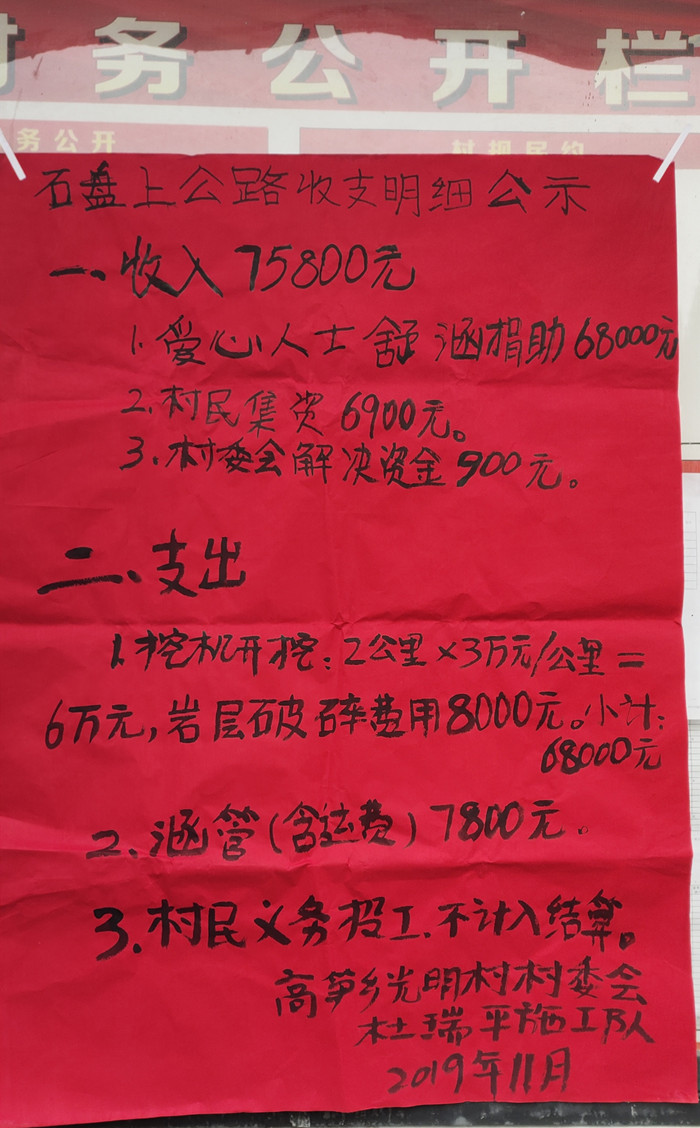 村务公开栏
务公开
村规民约
石盘上公路收支明细公示
一、收入75800元
1.爱心人士舒涵捐助68000元
2.村民集资6900元。
3.村委会解决资金900元。
二、支出
1.挖机开挖:2公里×3万元/公里=
6万元,岩层破碎费用8000元。小计:
68000元
2、涵管(含运费)7800元。
3.村民义务投工.不计入结算。
高笋乡光明村村委会
杜瑞平施工队
2019年11月